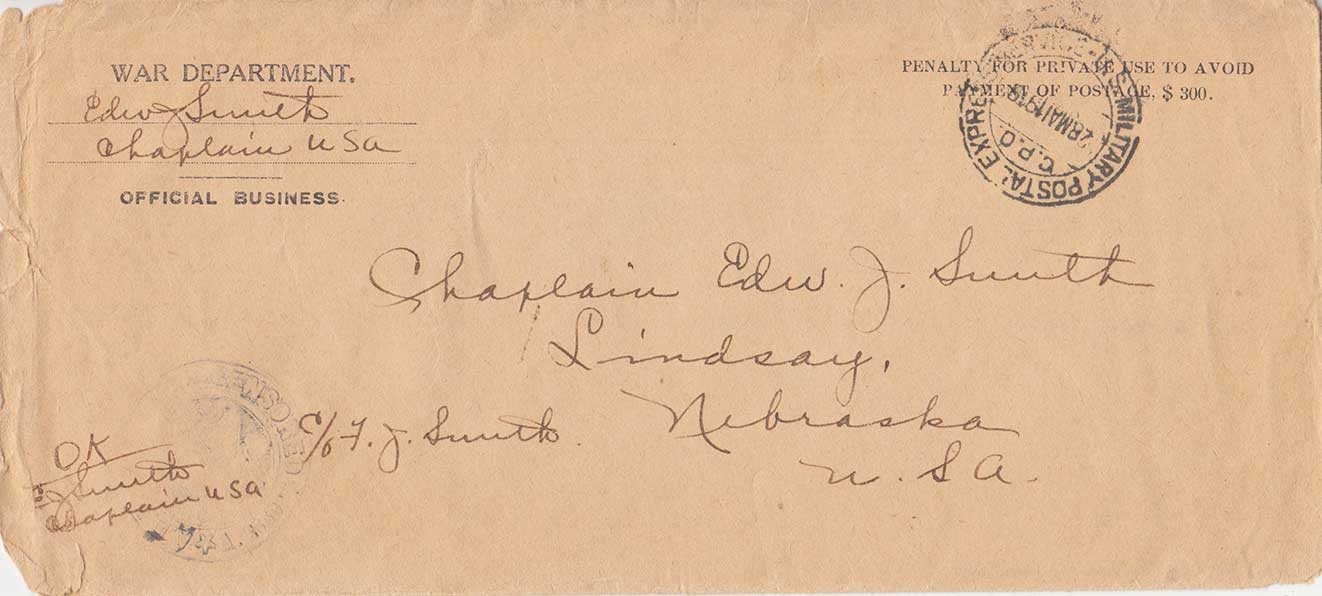 WAR DEPARTMENT.
Edw J Smith
Chaplain USA
OFFICIAL BUSINESS.
PENALTY FOR PRIVATE USE TO AVOID
PAYMENT OF POSTAGE, $ 300.
U.S. MILITARY POSTAL EXPRESS SERVICE
28 MAI 1919
C.P.O.
Chaplain Edw. J. Smith
Lindsay,
Nebraska
U. S A.
c/o F. J. Smith.
CENSORED
OK
E J Smith
Chaplain USA